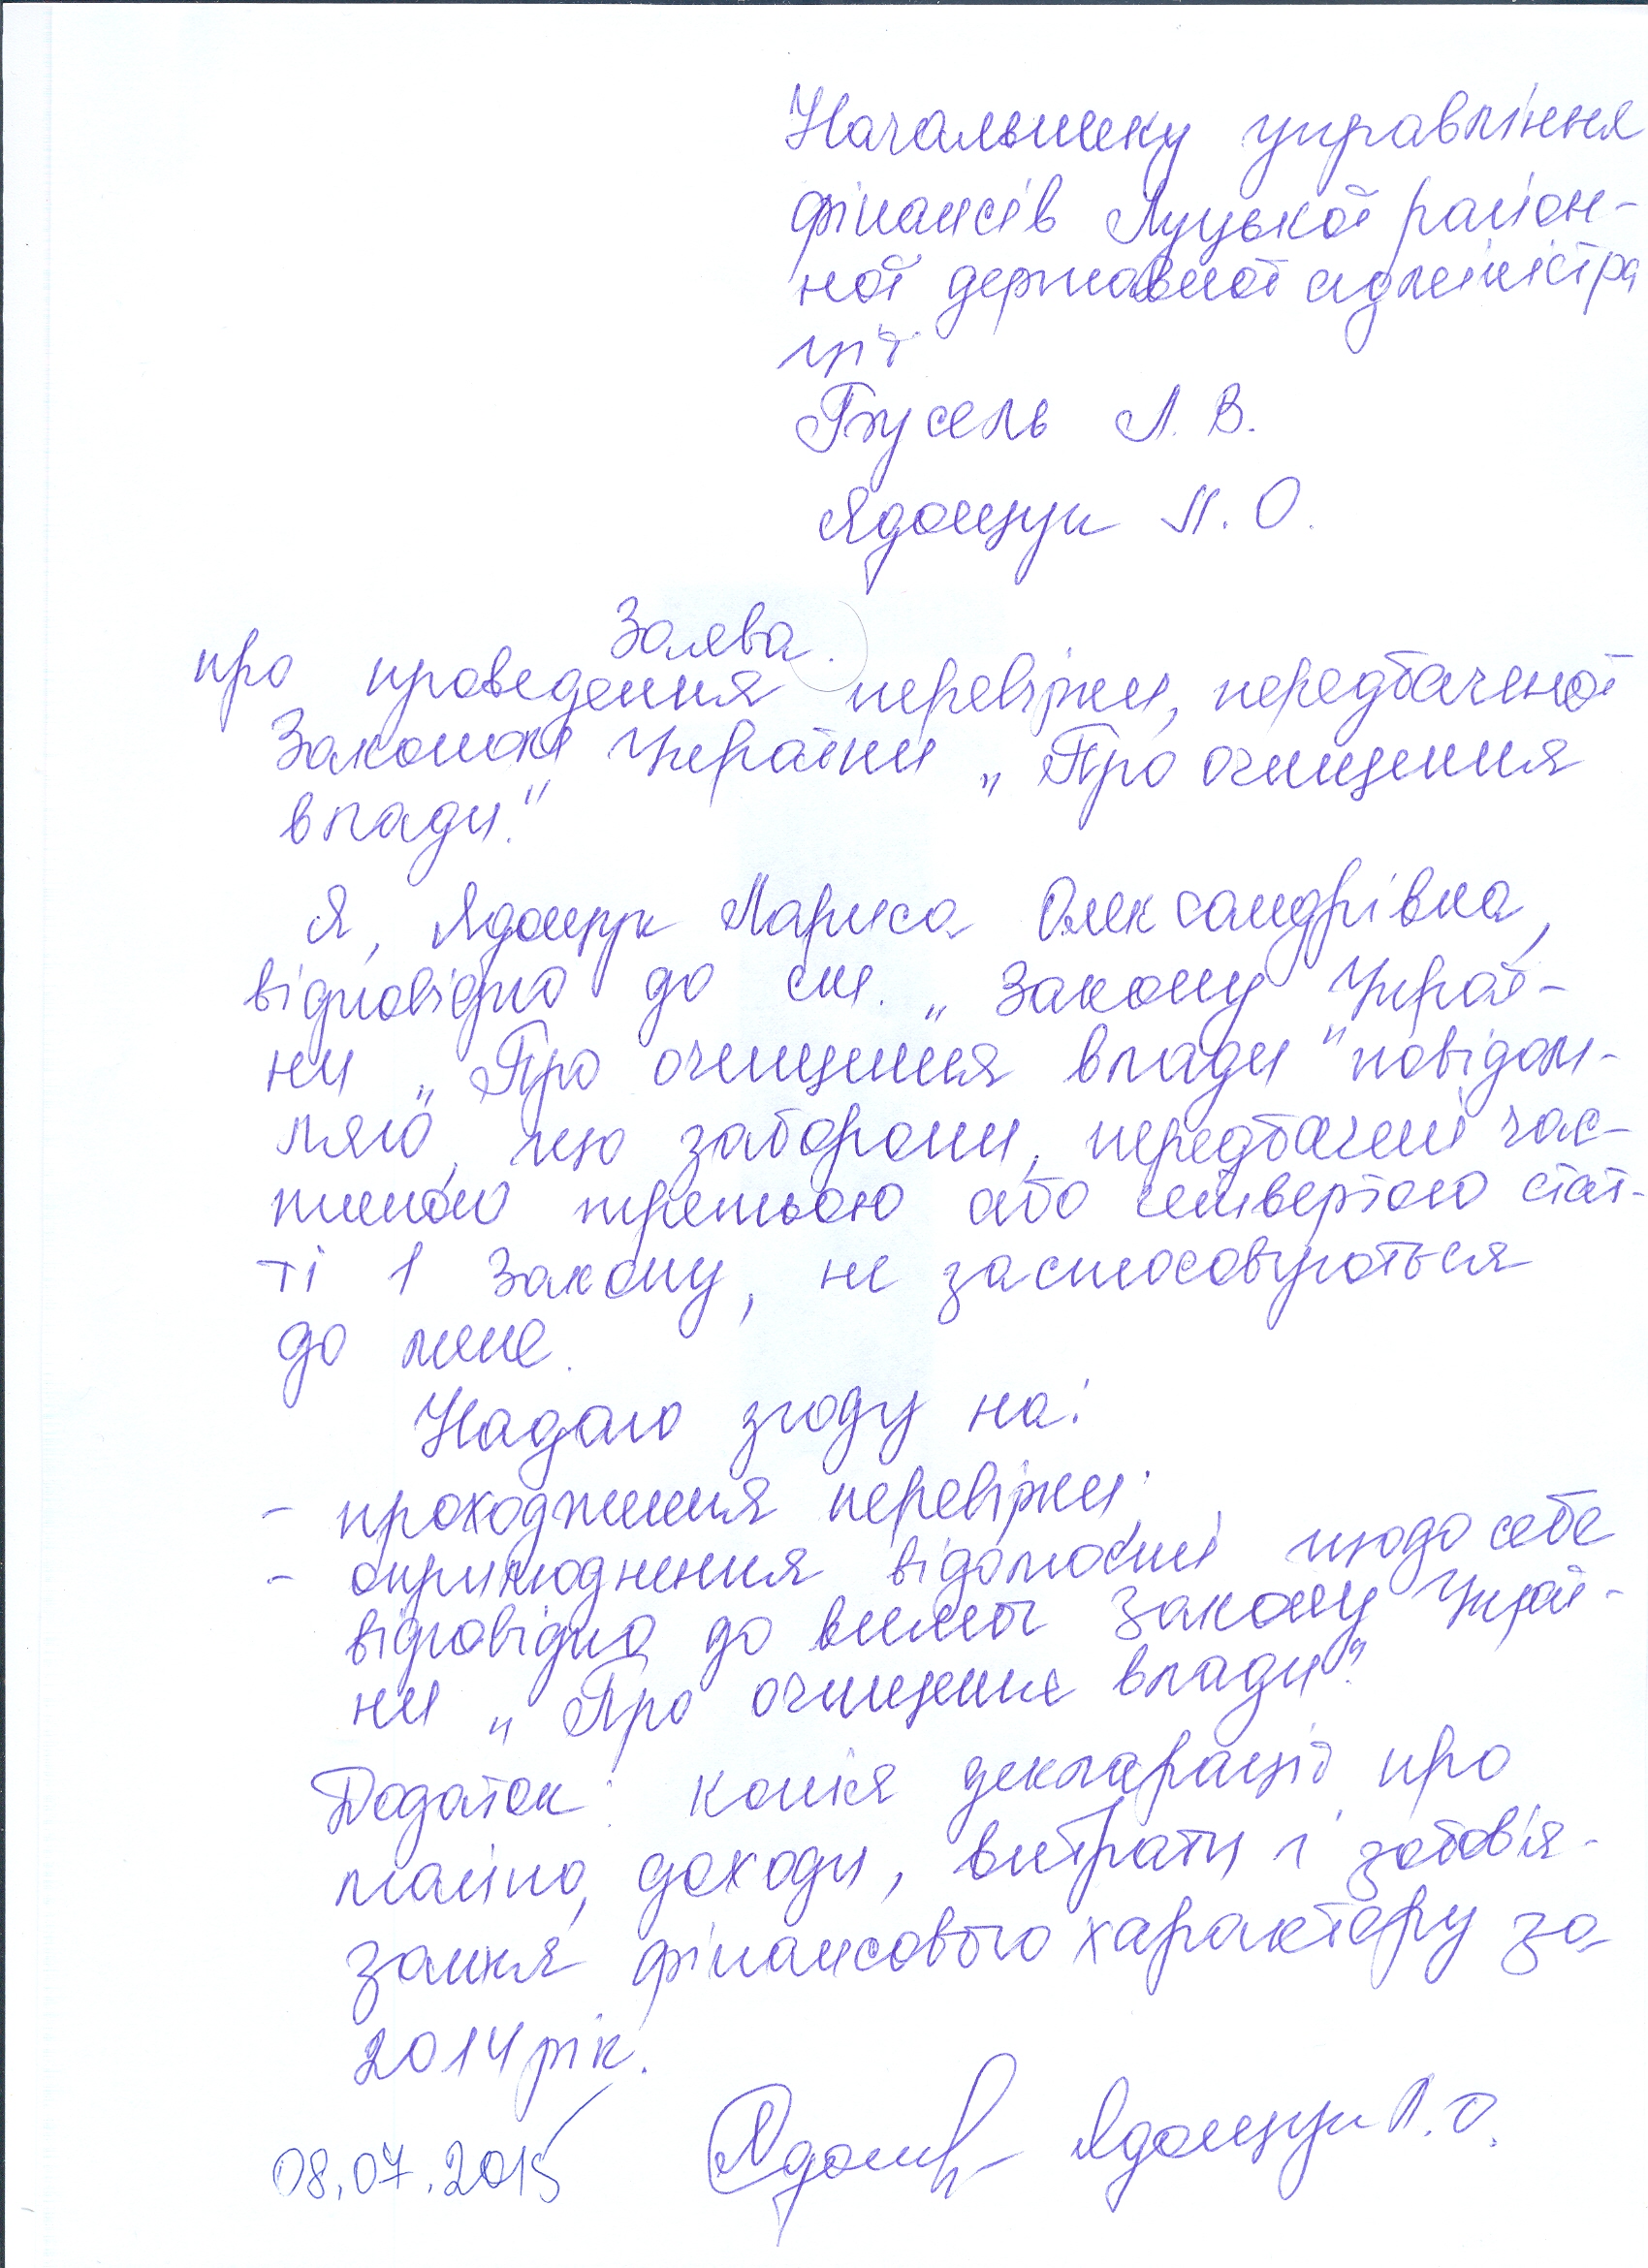 Начальнику управління
фінансів Луцької район-
ної державної адміністра
ції
Бусель Л. В.
Ядощук Л. О.
Заява.
про проведення перевірки, передбаченої
Законом України „Про очищення
влади."
Я, Ядощук Лариса Олександрівна,
відповідно до ст. „ Закону Украї-
ни „Про очищення влади" повідом-
ляю, що заборони, передбачені час-
тиною третьою або четвертою стат-
ті 1 Закону, не застосовуються
до мене.
Надаю згоду на:
- проходження перевірки;
- оприлюднення відомостей щодо себе
відповідно до вимог Закону Украї-
ни „Про очищення влади".
Додаток: копія декларації про
майно, доходи, витрати і зобов'я-
зання фінансового характеру за
2014 рік.
08.07.2015 Ядощук Л. О.